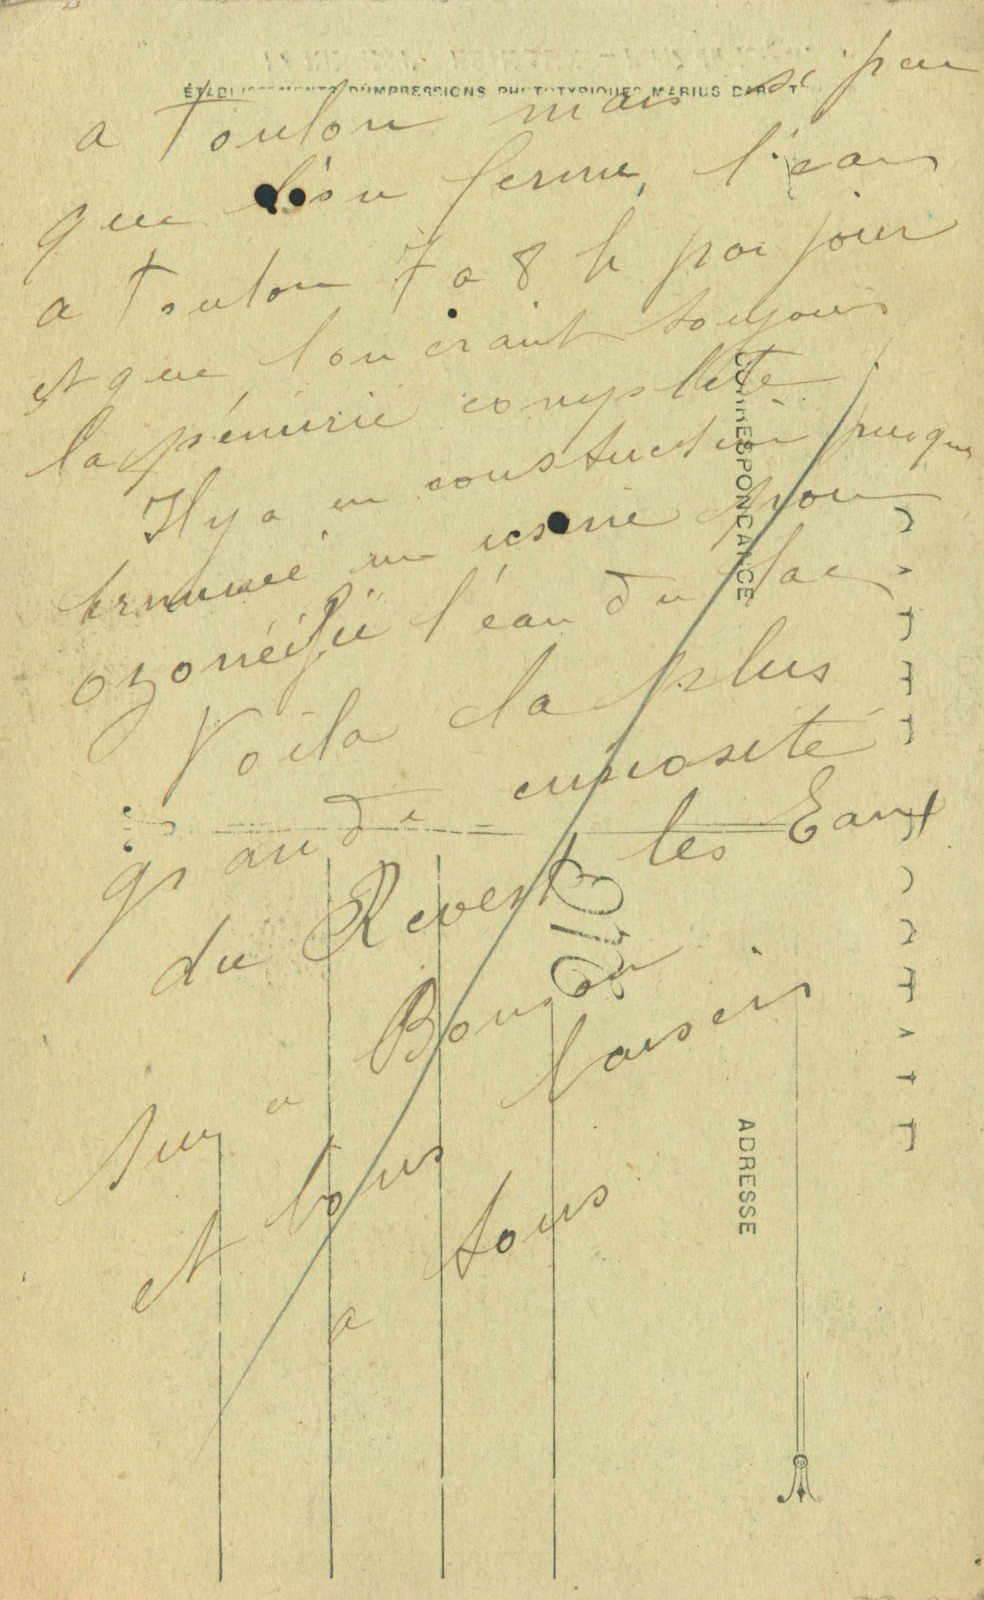 ÉTABLISSEMENTS D'IMPRESSIONS PHOTOTYPIQUES MARIUS BAR
a Toulon mais si peu
que l'on ferme l'eau
a Toulon 7 a 8 h par jour
et que l'on craint toujours
la pénurie complète
Il y a en construction presque
terminé une usine pour
l'eau du lac
Voila la plus
grande curiosité
du Revest les Eaux
Sur a
et bons baisers
a tous
CORRESPONDANCE
ADRESSE
CARTE POSTALE